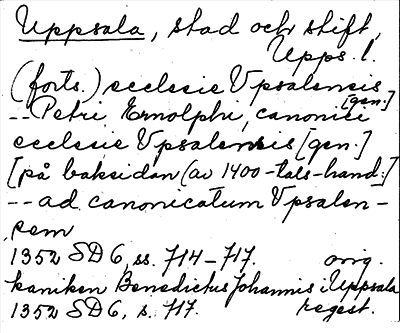 Uppsala, stad och stift,
Upps. l.
(forts.) ecclesie Vpsalensis
[gen.]
-- Petri Ernolphi, canonici
ecclesie Vpsalensis [gen.]
[på baksidan (av 1400-tals-hand:]
-- ad canonicatum Vpsalen-
sem
1352 SD 6, ss. 714-717. orig.
kaniken Benedictus Johannis i Uppsala
1352 SD 6, s. 717. regest.